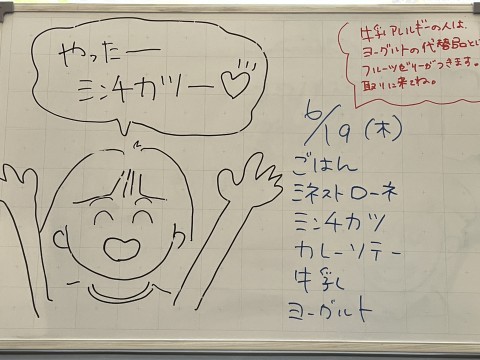 やったー
ミンチカツー♡
牛乳アレルギーの人は、
ヨーグルトの代替品とし
フルーツゼリーがつきます。
取りに来てね。
6/19(木)
ごはん
ミネストローネ
ミンチカツ
カレーソテー
牛乳
ヨーグルト